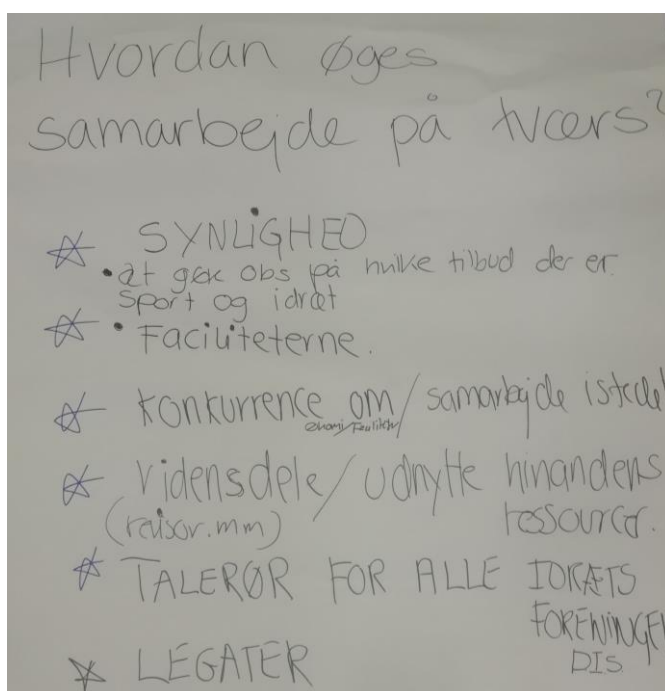 Hvordan øges
samarbejde på tværs?
SYNLIGHED
• at gøre obs på hvilke tilbud der er
sport og idræt
• Faciliteterne.
Konkurrence om / samarbejde istedet
vidensdele / udnytte hinandens
(revisor.mm) ressourcer.
TALERØR FOR ALLE IDRÆTS
FORENINGER
DIS
LEGATER